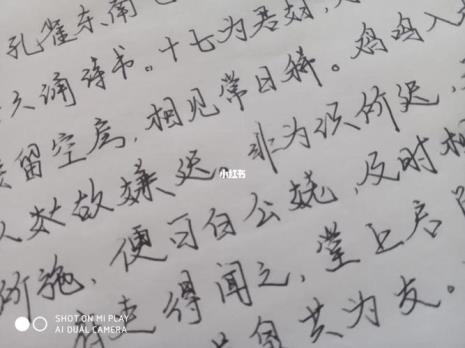 孔雀东南
六诵诗书。十七为君妇,
留空房,相见常日稀。鸡鸣入
人故嫌迟。非为织作迟,
小红书
施,便可白公姥,及时相
吏得闻之,堂上启
共为友。
SHOT ON MI PLAY
AI DUAL CAMERA